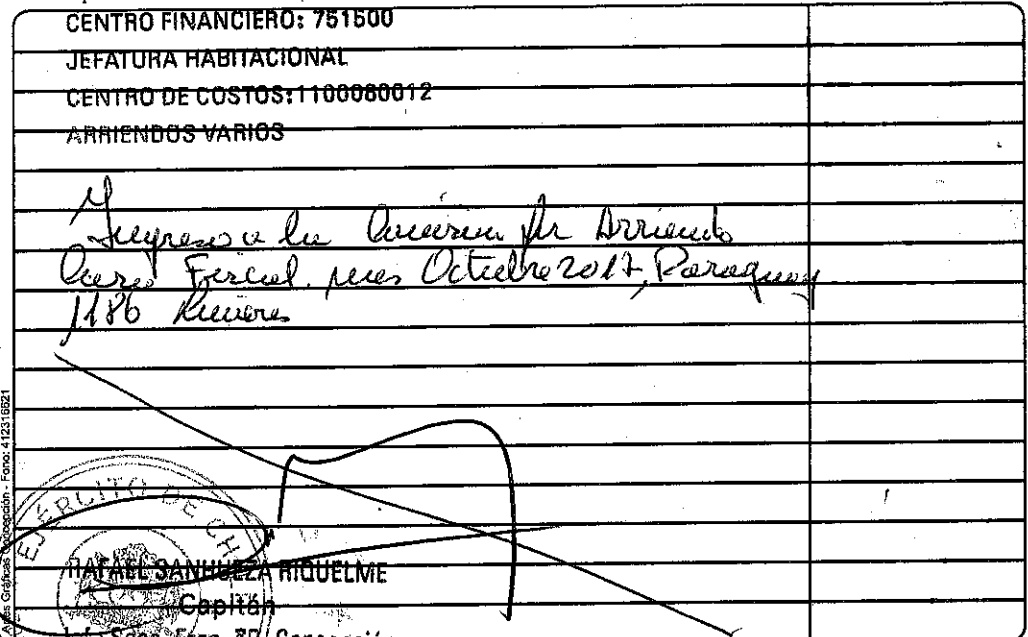 CENTRO FINANCIERO: 751500
JEFATURA HABITACIONAL
CENTRO DE COSTOS:1100080012
ARRIENDOS VARIOS
Ingreso a la por Arriendo
Casa Fiscal. mes Octubre 2017, Paraguay
1186
Artes Gráficas Concepción - Fono: 412316621
EJÉRCITO DE CH
RAFAEL SANHUEZA RIQUELME
Capitán
Concepción